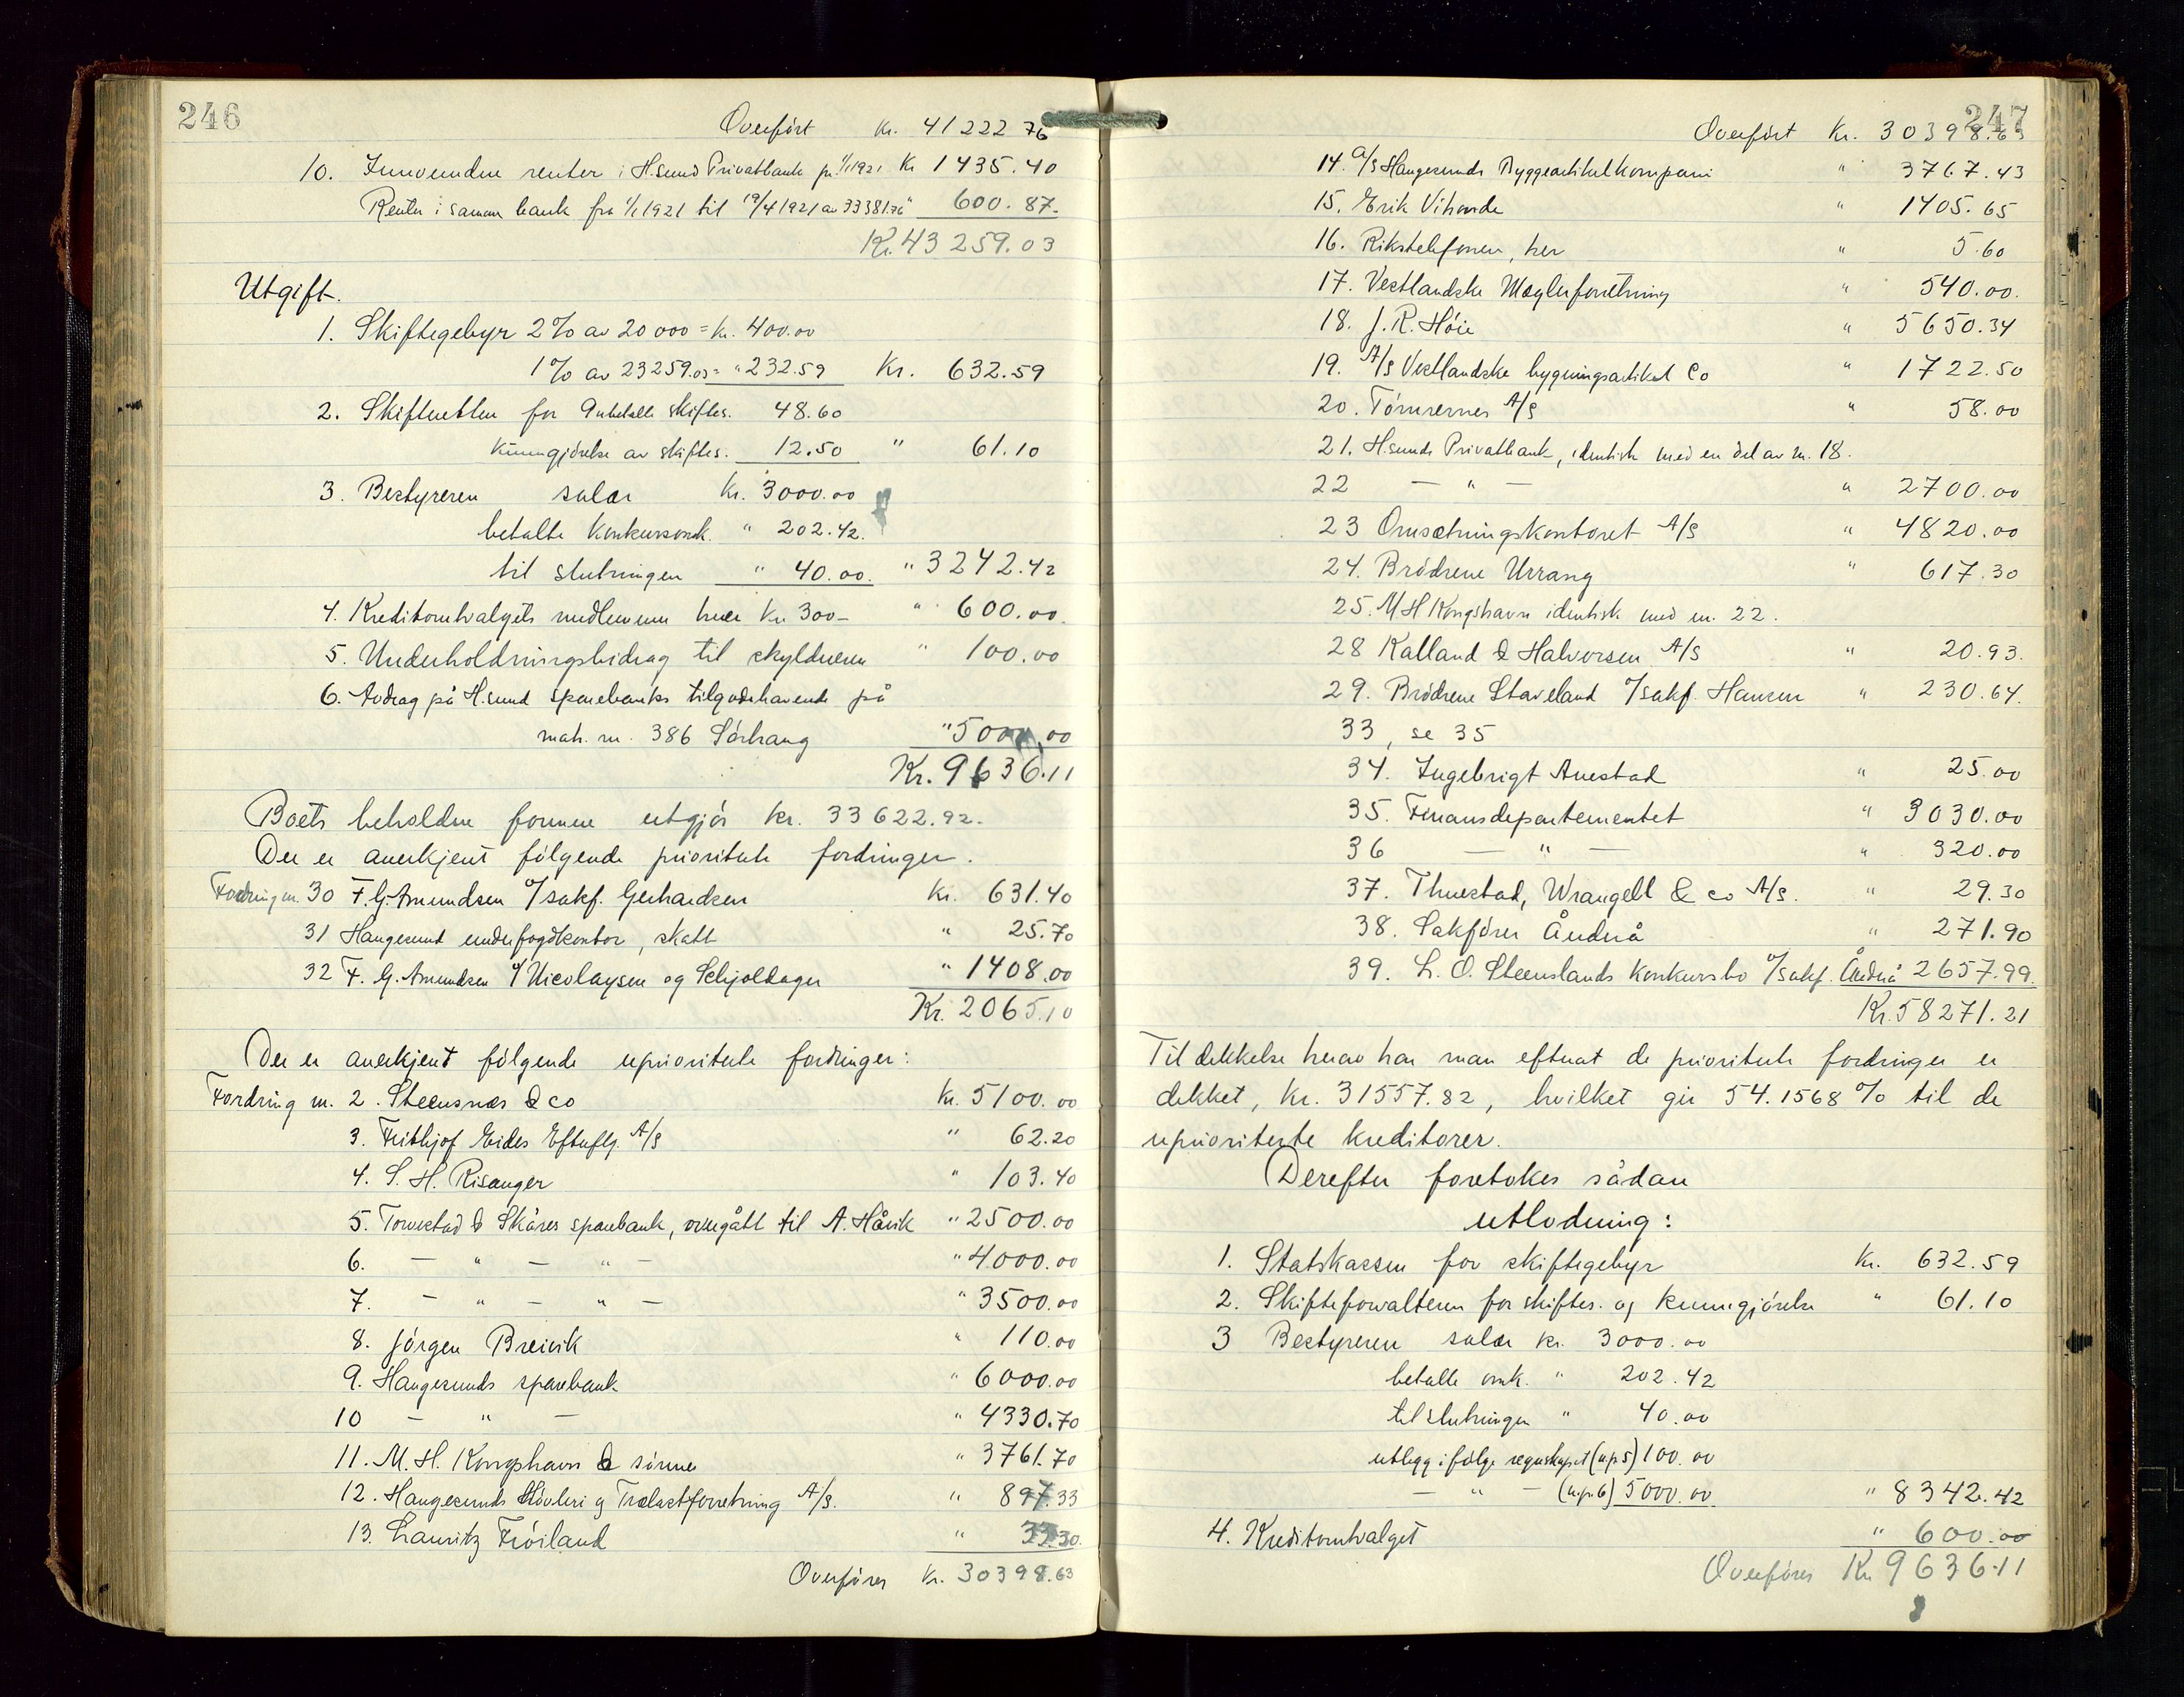 246
Overført Kr. 41222 76
10. Innvundne renter i H.sund Privatbank pr. 1/1 1921 Kr 1435.40
Renter i samme bank fra 1/1 1921 til 19/4 1921 av 33381.76 " 600.87
Kr. 43259.03
Utgift.
1. Skiftegebyr 2% av 20000 = kr. 400.00
1% av 23259.03 = " 232.59 Kr. 632.59
2. Skifteretten for skiftes. 48.60
Kunngjörelse av skiftes. 12.50 " 61.10
3. Bestyreren salær Kr. 3000.00
betalte konkursomk. " 202.42
til slutningen " 40.00. " 3242.42
4. Kreditorutvalgets medlemmer hver Kr 300 – " 600.00.
5. Underholdningsbidrag til skyldneren " 100.00
6. Avdrag på H.sund sparebanks tilgodehavende på
matr. nr. 386 Sörhaug " 5000.00
Kr. 9636.11
Boets beholdne formue utgjör kr. 33622.92.
Der er anerkjent fölgende prioriterte fordringer.
Fordring nr. 30 F. G. Amundsen v/sakf. Gerhardsen Kr. 631.40
31 Haugesund underfogdkontor, skatt " 25.70
32 F. G. Amundsen v/ Nicolaysen og Schjoldager " 1408.00
Kr. 2065.10
Der er anerkjent fölgende upriorit​erte fordringer:
Fordring nr. 2. Steensnæs & co Kr. 5100.00
3. Frithjof Eides Efterflg. A/S " 62.20
4. S. H. Risanger " 103.40
5. Torvestad & Skåres sparebank, overgått til A. Håvik " 2500.00
6. – " – " – " 4000.00
7. – " – " – " 3500.00
8. Jörgen Breivik " 110.00
9. Haugesunds sparebank " 6000.00
10 – " – " 4330.70
11. M. H. Kongshavn & sönner " 3761.70
12. Haugesunds Hövleri og Trælastforretning A/S. " 897.33
13. Lauritz Fröiland " 33.30.
Overföres Kr. 30398.63
247
Overfört Kr. 30398.63
14. A/S Haugesunds Byggeartikkelkompani " 3767.43
15. Erik Vihovde " 1405.65
16. Rikstelefonen, her " 5.60
17. Vestlandske Mæglerforretning " 540.00.
18. J. R. Höie " 5650.34
19. A/S Vestlandske bygningsartikel Co " 1722.50
20. Tömrernes A/S " 58.00
21. H.sunds Privatbank, identisk med en del av nr. 18.
22 – " – " 2700.00
23 Omsætningskontoret A/S " 4820.00
24. Brödrene Urrang " 617.30
25. M H Kongshavn identisk med nr. 22.
28 Kalland & Halvorsen A/S " 20.93.
29. Brödrene Staveland v/sakf. Hansen " 230.64.
33, se 35
34. Ingebrigt Auestad " 25.00
35. Finansdepartementet " 3030.00
36 – " – " 320.00
37. Thuestad, Wrangell & co A/S. " 29.30
38. Sakförer Åndnå " 271.90
39. L. O. Steenslands konkursbo v/sakf. Åndnå 2657.99.
Kr. 58271.21
Til dekkelse herav har man efterat de prioriterte fordringer er
dekket, Kr. 31557.82, hvilket gir 54.1568 % til de
upriorit​erte kreditorer.
Derefter foretokes sådan
utlodning:
1. Statskassen for skiftegebyr Kr. 632.59
2. Skifteforvalteren for skiftes. og kunngjörelse " 61.10
3 Bestyreren salær Kr. 3000.00
betalte omk. " 202.42
til slutningen " 40.00
utlegg ifölge regnskapet (u.p. 5) 100.00
– " – (u.p. 6) 5000.00 " 8342.42
4. Kreditorutvalget " 600.00
Overföres Kr 9636.11